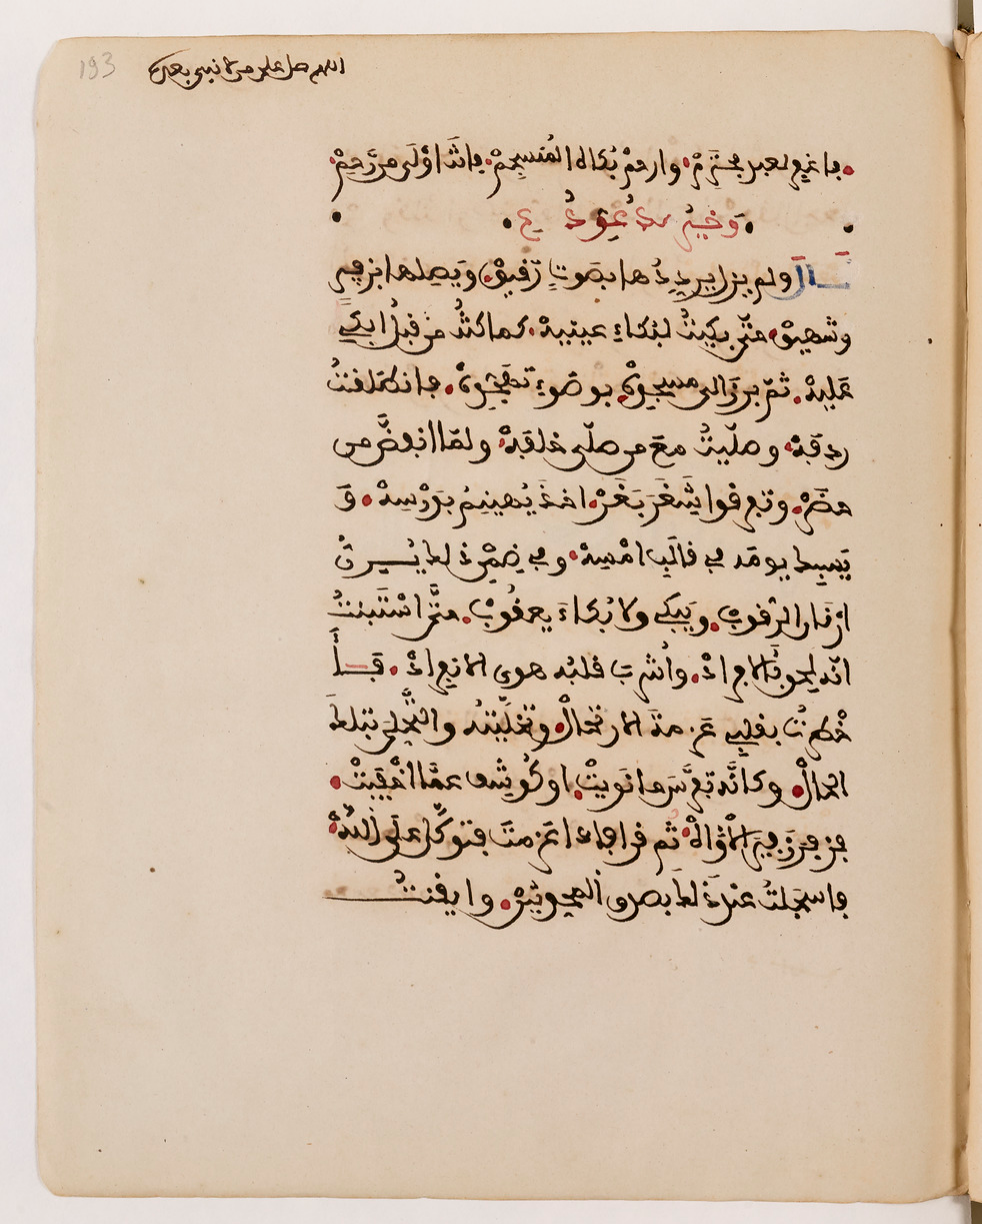 193
اللهم صل على من لا نبي بعده
فاغفر لعبد مجترم وارحم بكاه المنسجم فأنت أولى من رحم
وخير مدعو دعي
قال ولم يزل يرددها بصوت رقيق ويصلها بزفير
وشهيق حتى بكيت لبكاء عينيه كما كنت من قبل ابكي
عليه ثم برز الى مسجده بوضوء تهجده فانطلقت
ردفه وصليت مع من صلى خلفه ولما انفض من
حضر وتفرقوا شغر بغر اخذ يهينم بدرسه و
يسبك يومه في قالب امسه وفي ضمن ذلك يرن
ارنان الرقوب ويبكي ولا بكاء يعقوب حتى استبنت
انه لحق بالافراد واشرب قلبه هوى الانفراد
خطرت بقلبي عزمة الارتحال وتخليته والتخلي بتلك
الحال وكانه تفرس ما نويت او كوشف عما اخفيت
فزفر زفير الاواه ثم قرا فإذا عزمت فتوكل على الله
فاسجلت عند ذلك بصدق المحدثين وايقنت